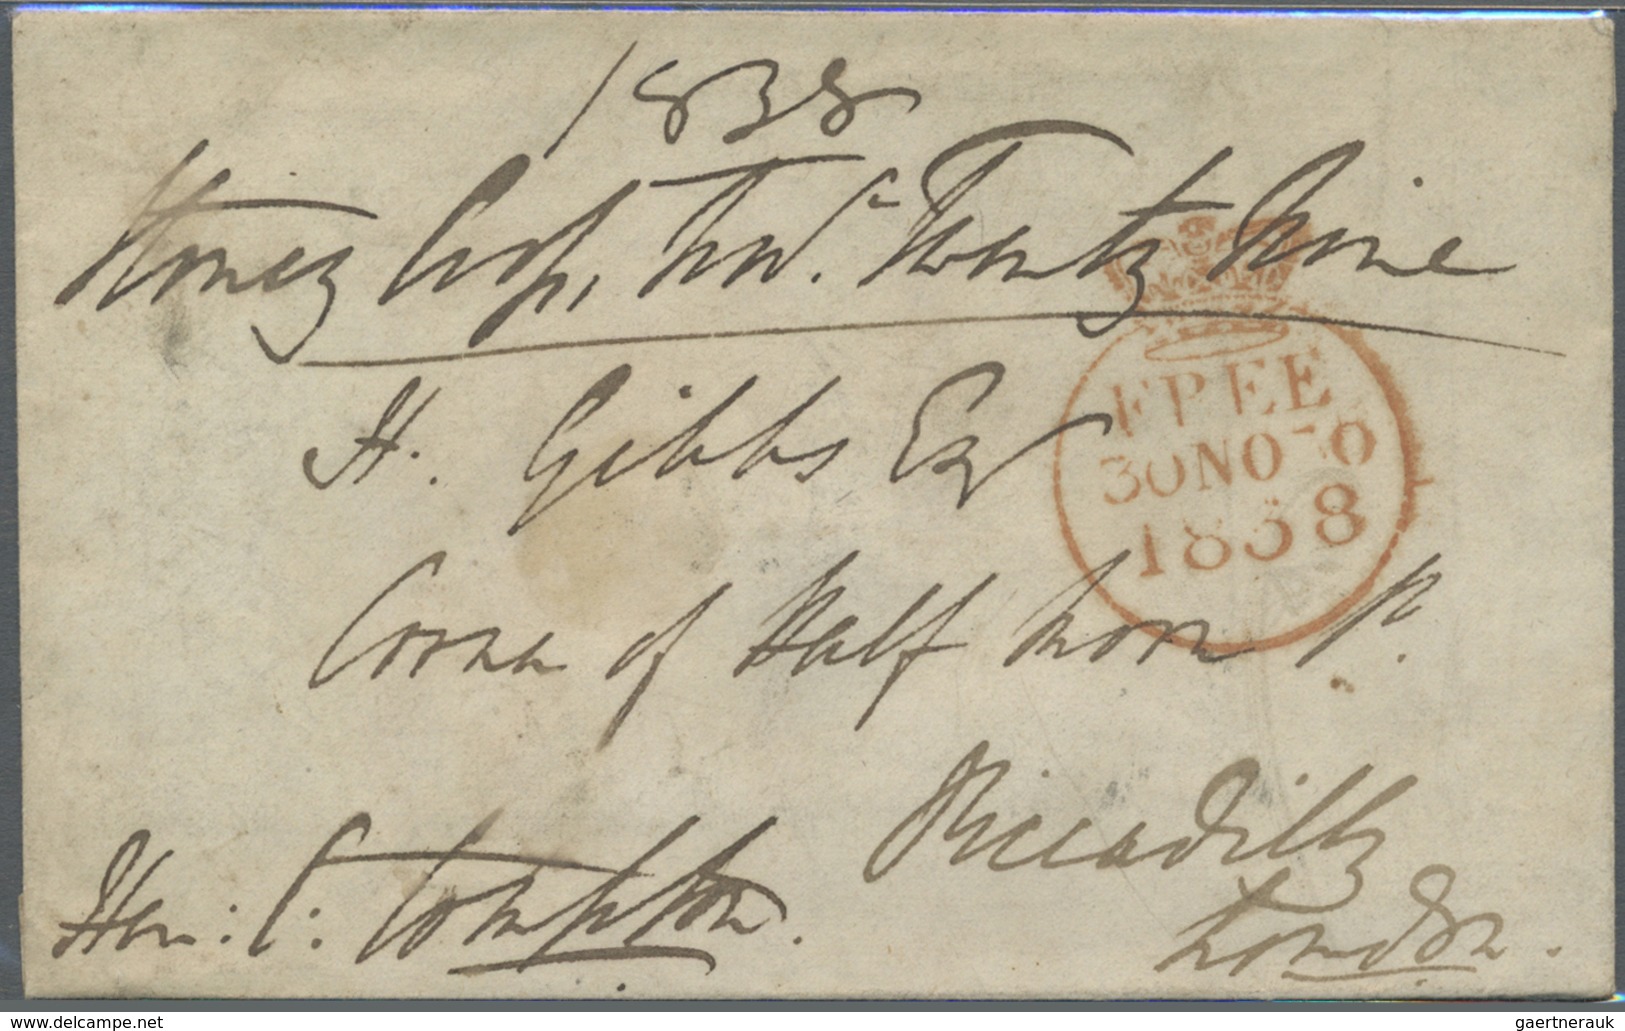 1838
Stoney Cross, Nov.r Twenty Nine
FREE
30NO30
1838
H. Gibbs Esq
Corner of Half Moon St.
Piccadilly
London.
Hen: C: Compton.
www.delcampe.net
gaertnerauk